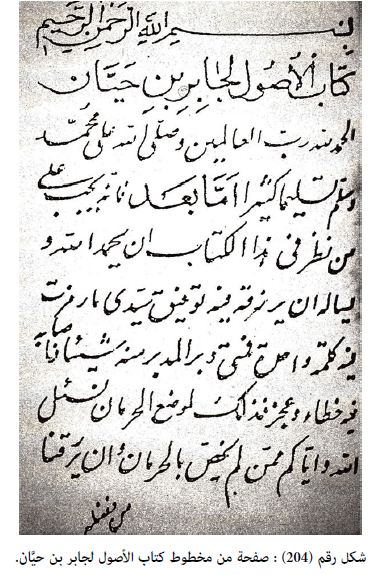 بسم الله الرحمن الرحيم
كتاب الأصول لجابر بن حيان
الحمد لله رب العالمين وصلى الله على محمد
وسلم تسليما كثيرا اما بعد فانه يجب على
من نظر فى هذا الكتاب ان يحمد الله و
يساله ان يرزقه فيه توفيق سيدى
فيه كلمة واحدة فمتى دبر المدبر منه شيئا فاصابه
فيه خطاء وعجز فذلك لموضع الحرمان نسئل
الله واياكم ممن لم يخص بالحرمان وان يرزقنا
من فضله
شكل رقم (204) : صفحة من مخطوط كتاب الأصول لجابر بن حيَّان.